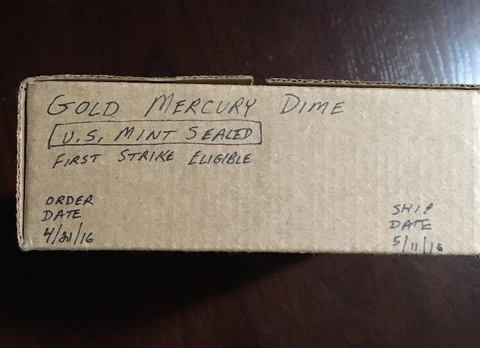 GOLD MERCURY DIME
U.S. MINT SEALED
FIRST STRIKE ELIGIBLE
ORDER
DATE
4/21/16
SHIP
DATE
5/11/16